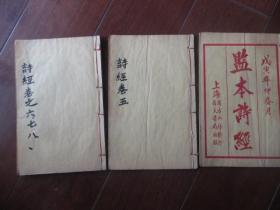 詩經卷之六七八
詩經卷五
戊寅年仲春月
監本詩經
上海